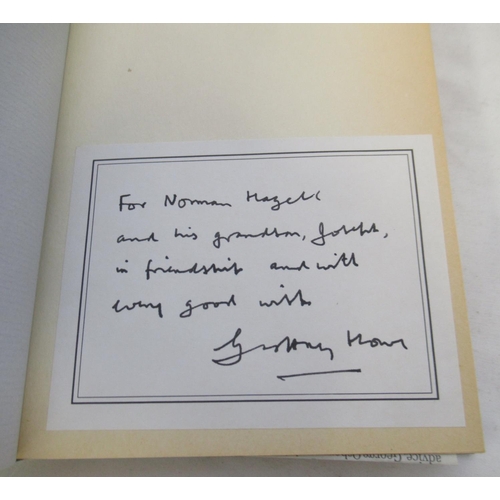 For Norman Hazell
and his grandson, Joseph,
in friendship and with
every good wish
Geoffrey Howe
advice George